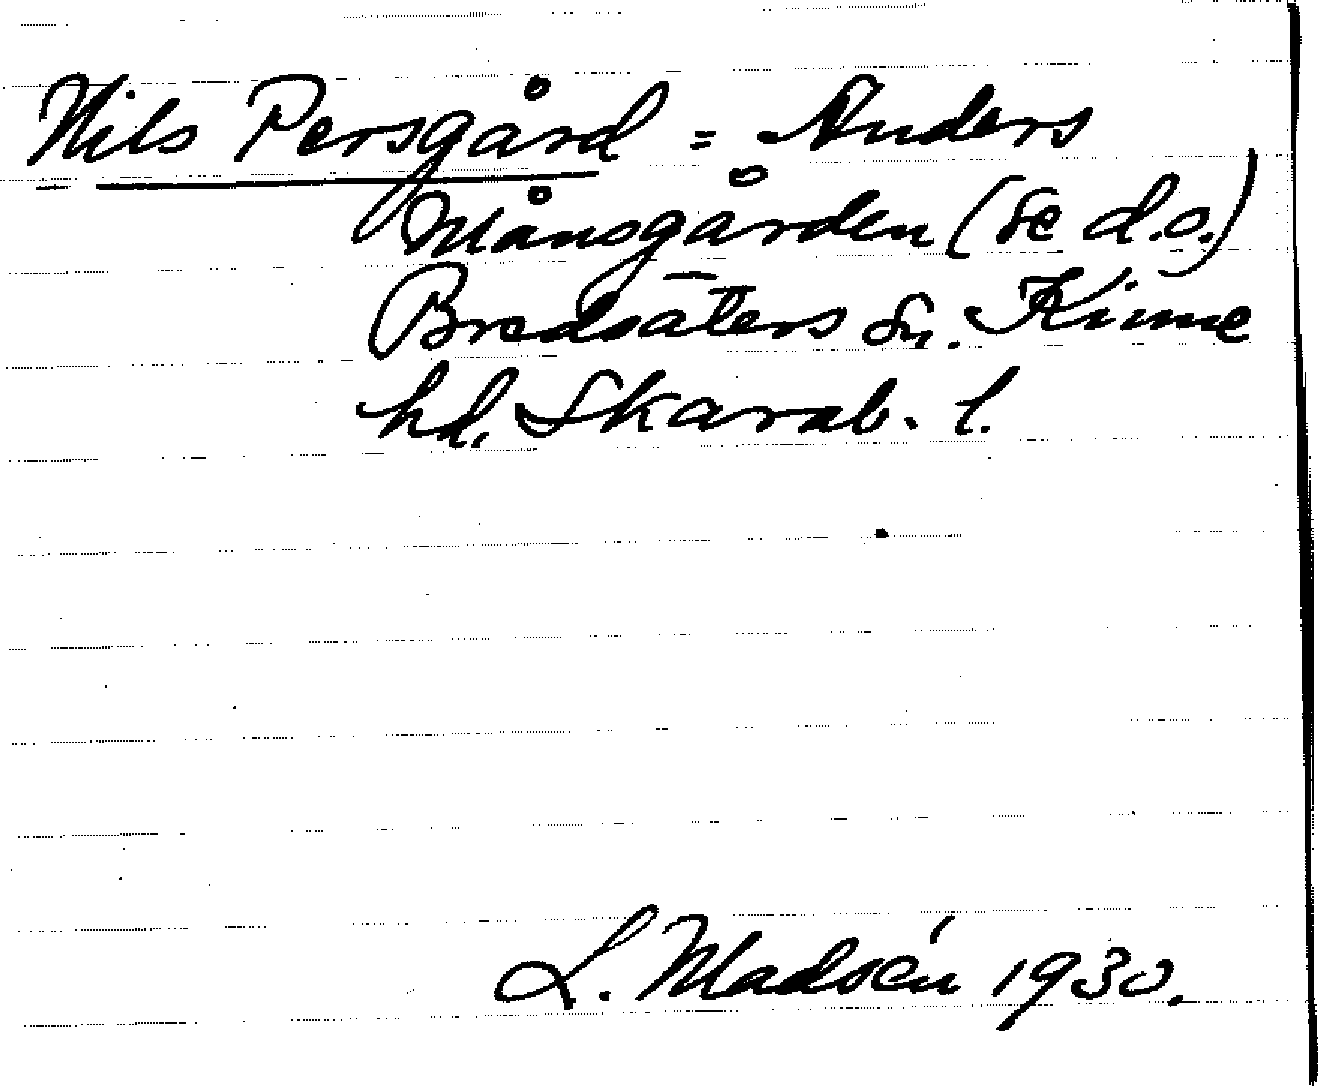 Nils Persgård = Anders
Månsgården (se d.o.)
Bredsäters sn. Kinne
hd. Skarab. l.
L. Madsén 1930.